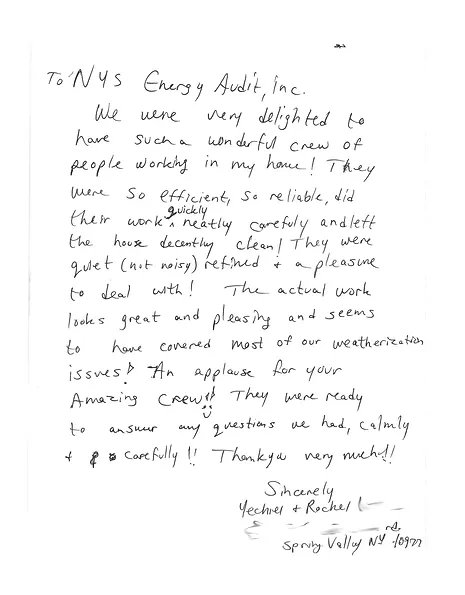 To NYS Energy Audit, Inc.
We were very delighted to
have such a wonderful crew of
people working in my home! They
were so efficient, so reliable, did
quickly
their work ^ neatly carefuly and left
the house decently clean! They were
quiet (not noisy) refined + a pleasure
to deal with! The actual work
looks great and pleasing and seems
to have covered most of our weatherization
issues! An applause for your
Amazing Crew!!
They were ready
to answer any questions we had, calmly
+ carefully!! Thank you very much!!
Sincerely
Yechiel + Rochel
rd.
Spring Valley NY 10977